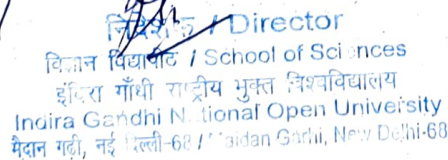 निदेशक / Director
विज्ञान विद्यापीठ / School of Sciences
इंदिरा गाँधी राष्ट्रीय मुक्त विश्वविद्यालय
Indira Gandhi National Open University
मैदान गढ़ी, नई दिल्ली-68 / Maidan Garhi, New Delhi-68